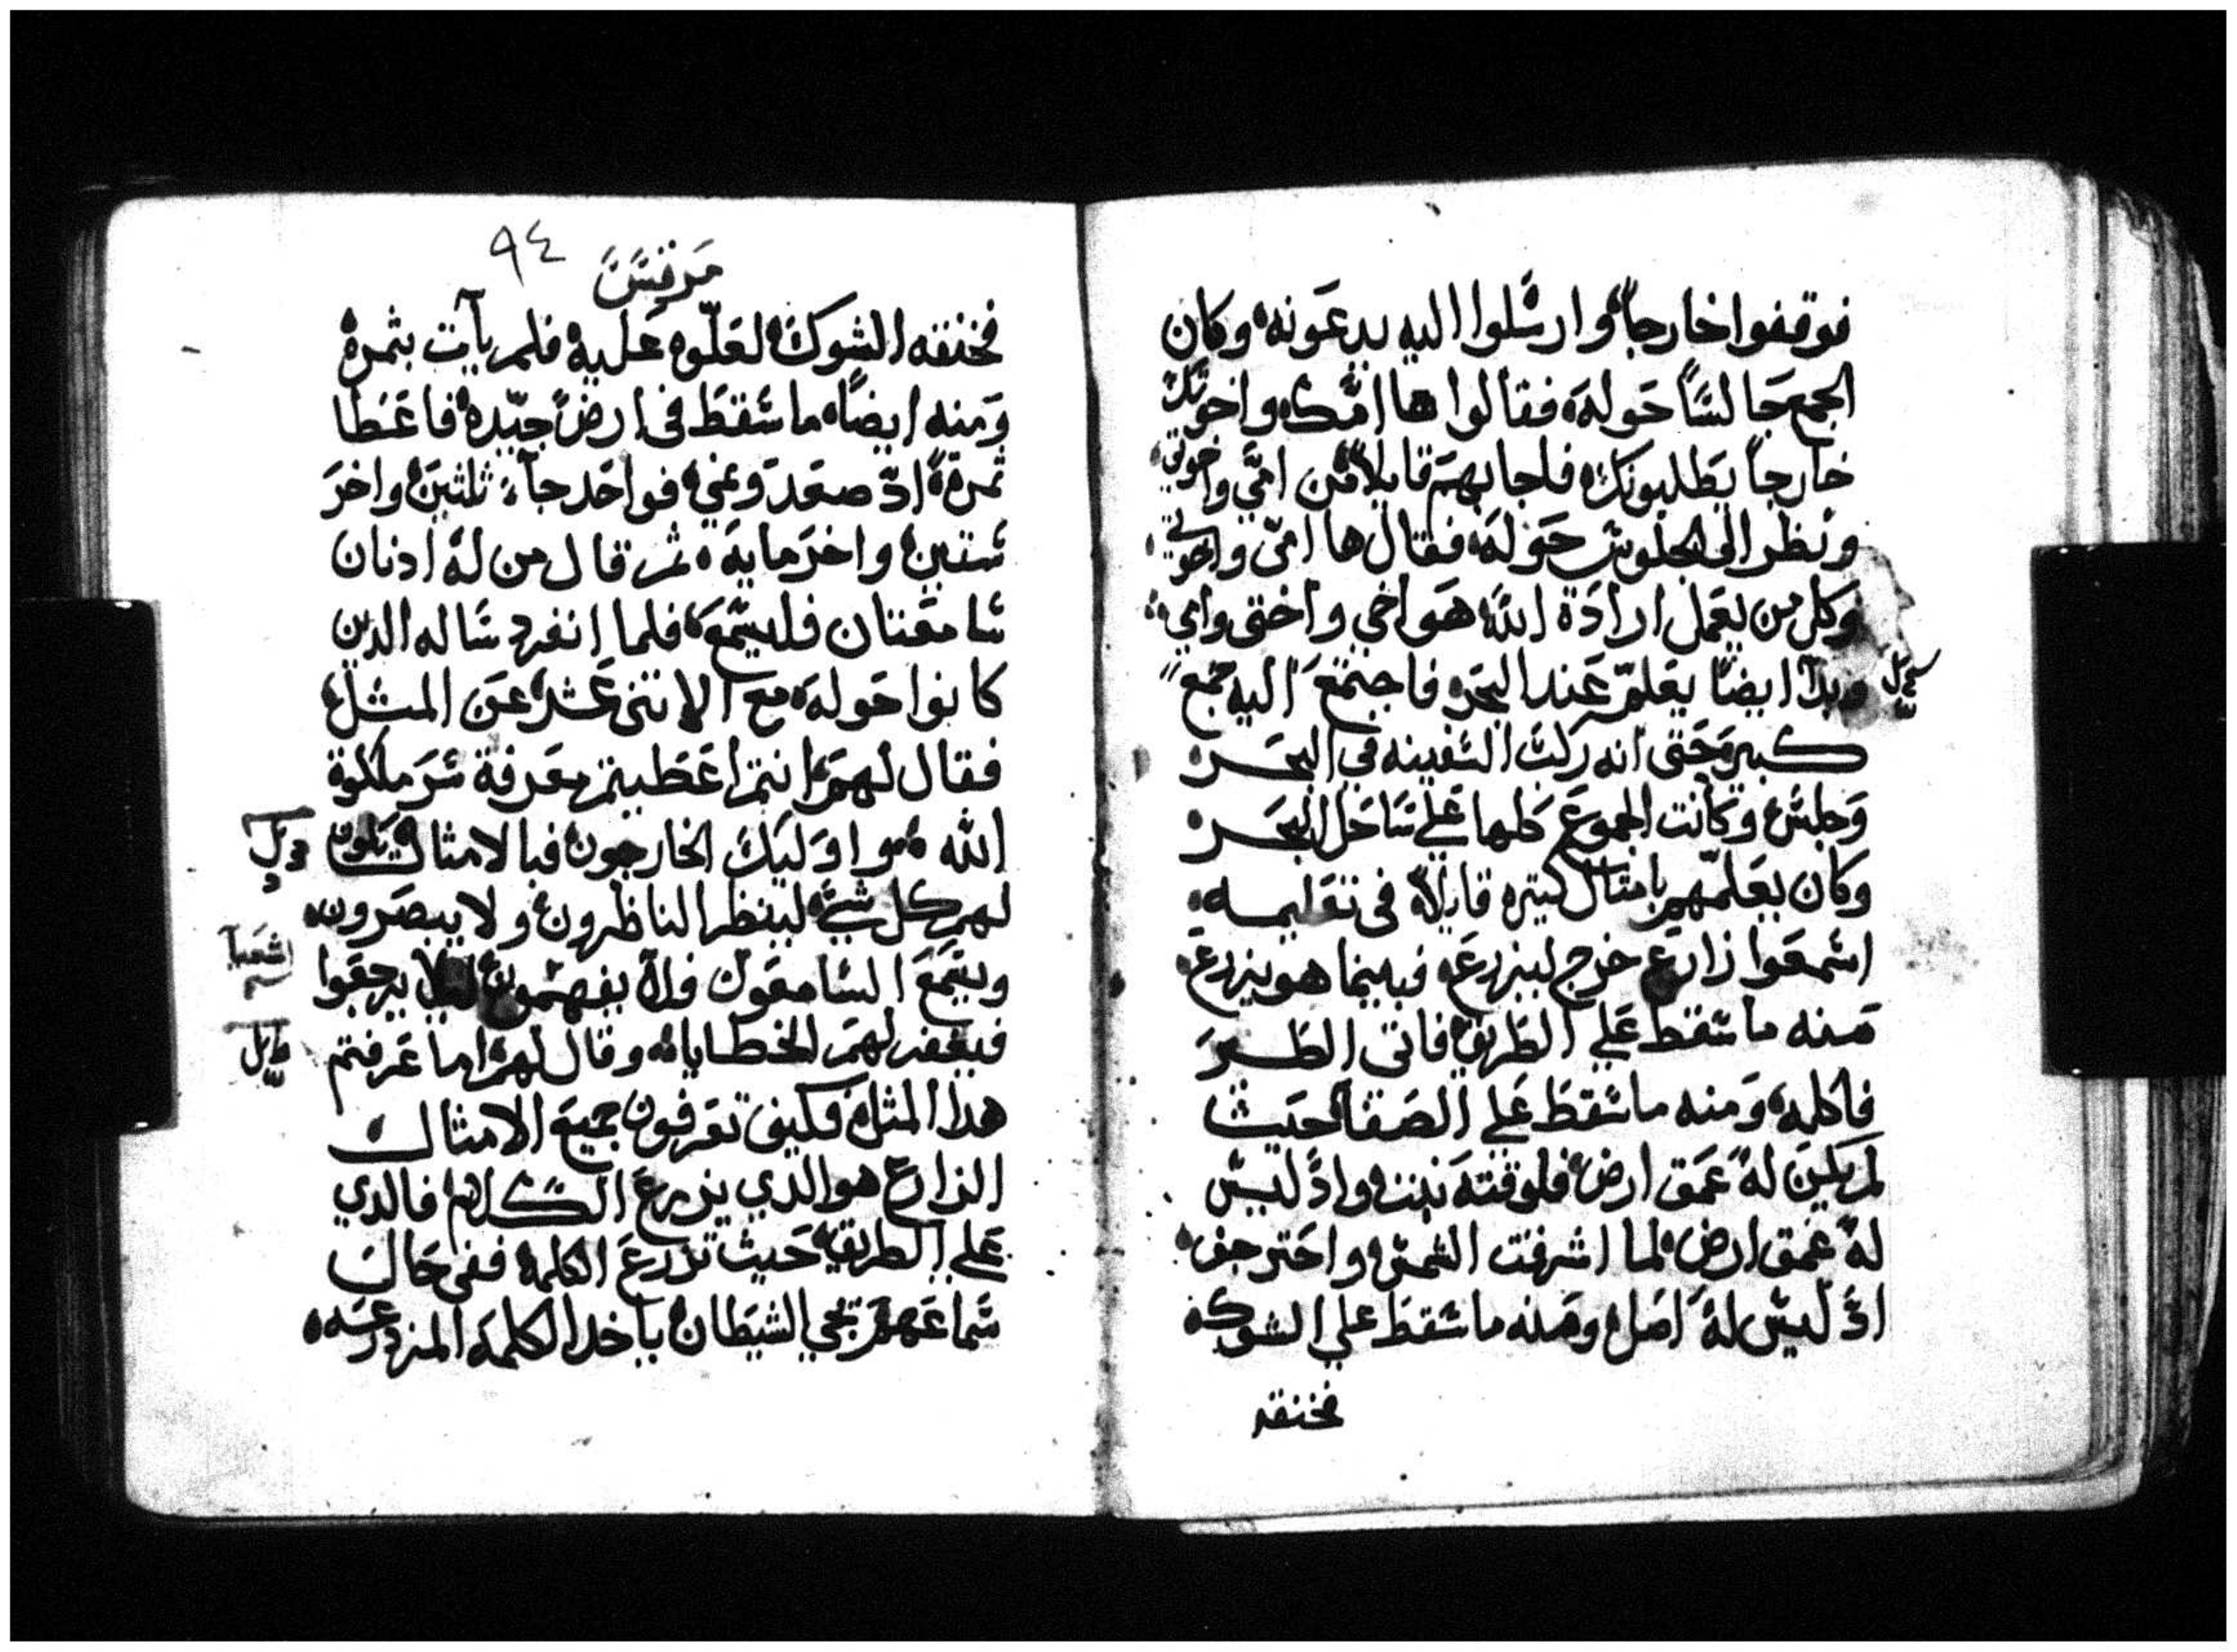 فوقفوا خارجاً وارسَلوا اليه يدعَونه وكان
الجمع جَالسًا حَوله فقالوا ها امّك واخوتك
خارجاً يَطلبونك فاجابهمَ قايلاً مَن امّي واخوتي
ونظر الى الجلوسَ حَوله فقال ها امّي واخوتي
وكل من يعَمل ارادة الله هَو اخي واختي وامي
وبدا ايضًا يعَلمّ عَند البحَر فاجتمعَ اليه جمع
كبير حَتي انه ركب السَفينه في البحَر
وَجلسَ وكانت الجموع كلها عَلي سَاحَل البحَر
وكان يعَلمّهم بامثال كتيره قايلاً في تعَليمه
اسَمعَوا زارع خرج ليزرعَ فبينما هو يزرع
مَنه ما سَقط عَلي الطَريق فاتي الطَير
فاكله وَمنه ما سَقطَ عَلي الصَفا حَيث
لم يكن له عَمَق ارض فلوقته نبت واذ ليسَ
له عَمق ارض لما اشرفت الشمسَ واحَترق جف
اذ ليسَ له اصَل ومَنه ما سَقطَ علي الشوك
فخنقه
مَرقسَ
٩٤
فخنقه الشوك لعَلّوه عَليه فلم يات بثمره
وَمنه ايضًا ما سَقطَ في ارض جيّده فاعَطا
ثمرة اذ صعَد وَنمي فواحَد جآ ثلثين واخرَ
سَتين واخرَ مايه ثم قال من له اذنان
سَامعَتان فليسَمعَ فلما انفرد سَاله الدين
كانوا حَوله مع الاثني عَشر عَن المثل
فقال لهمَ انتم اعَطيتم معَرفة سَر ملكوة
الله واوَليك الخارجون فبالامثال يكون
لهم كل شي لينظر الناظرون ولا يبصَرون
ويسَمعَ السَامعَون فلا يفهمون ليلا يرجعَوا
فيغفر لهمَ الخطايا وقال لهم اما عَرفتم
هدا المثل فكيف تعَرفون جميعَ الامثال
الزارع هو الدي يزرعَ الكلام فالدي
عَلي الطريق حَيث تزرعَ الكلمه ففي حَال
سَماعَهم يجي الشيَطان ياخد الكلمه المزروعَه
اشعيا